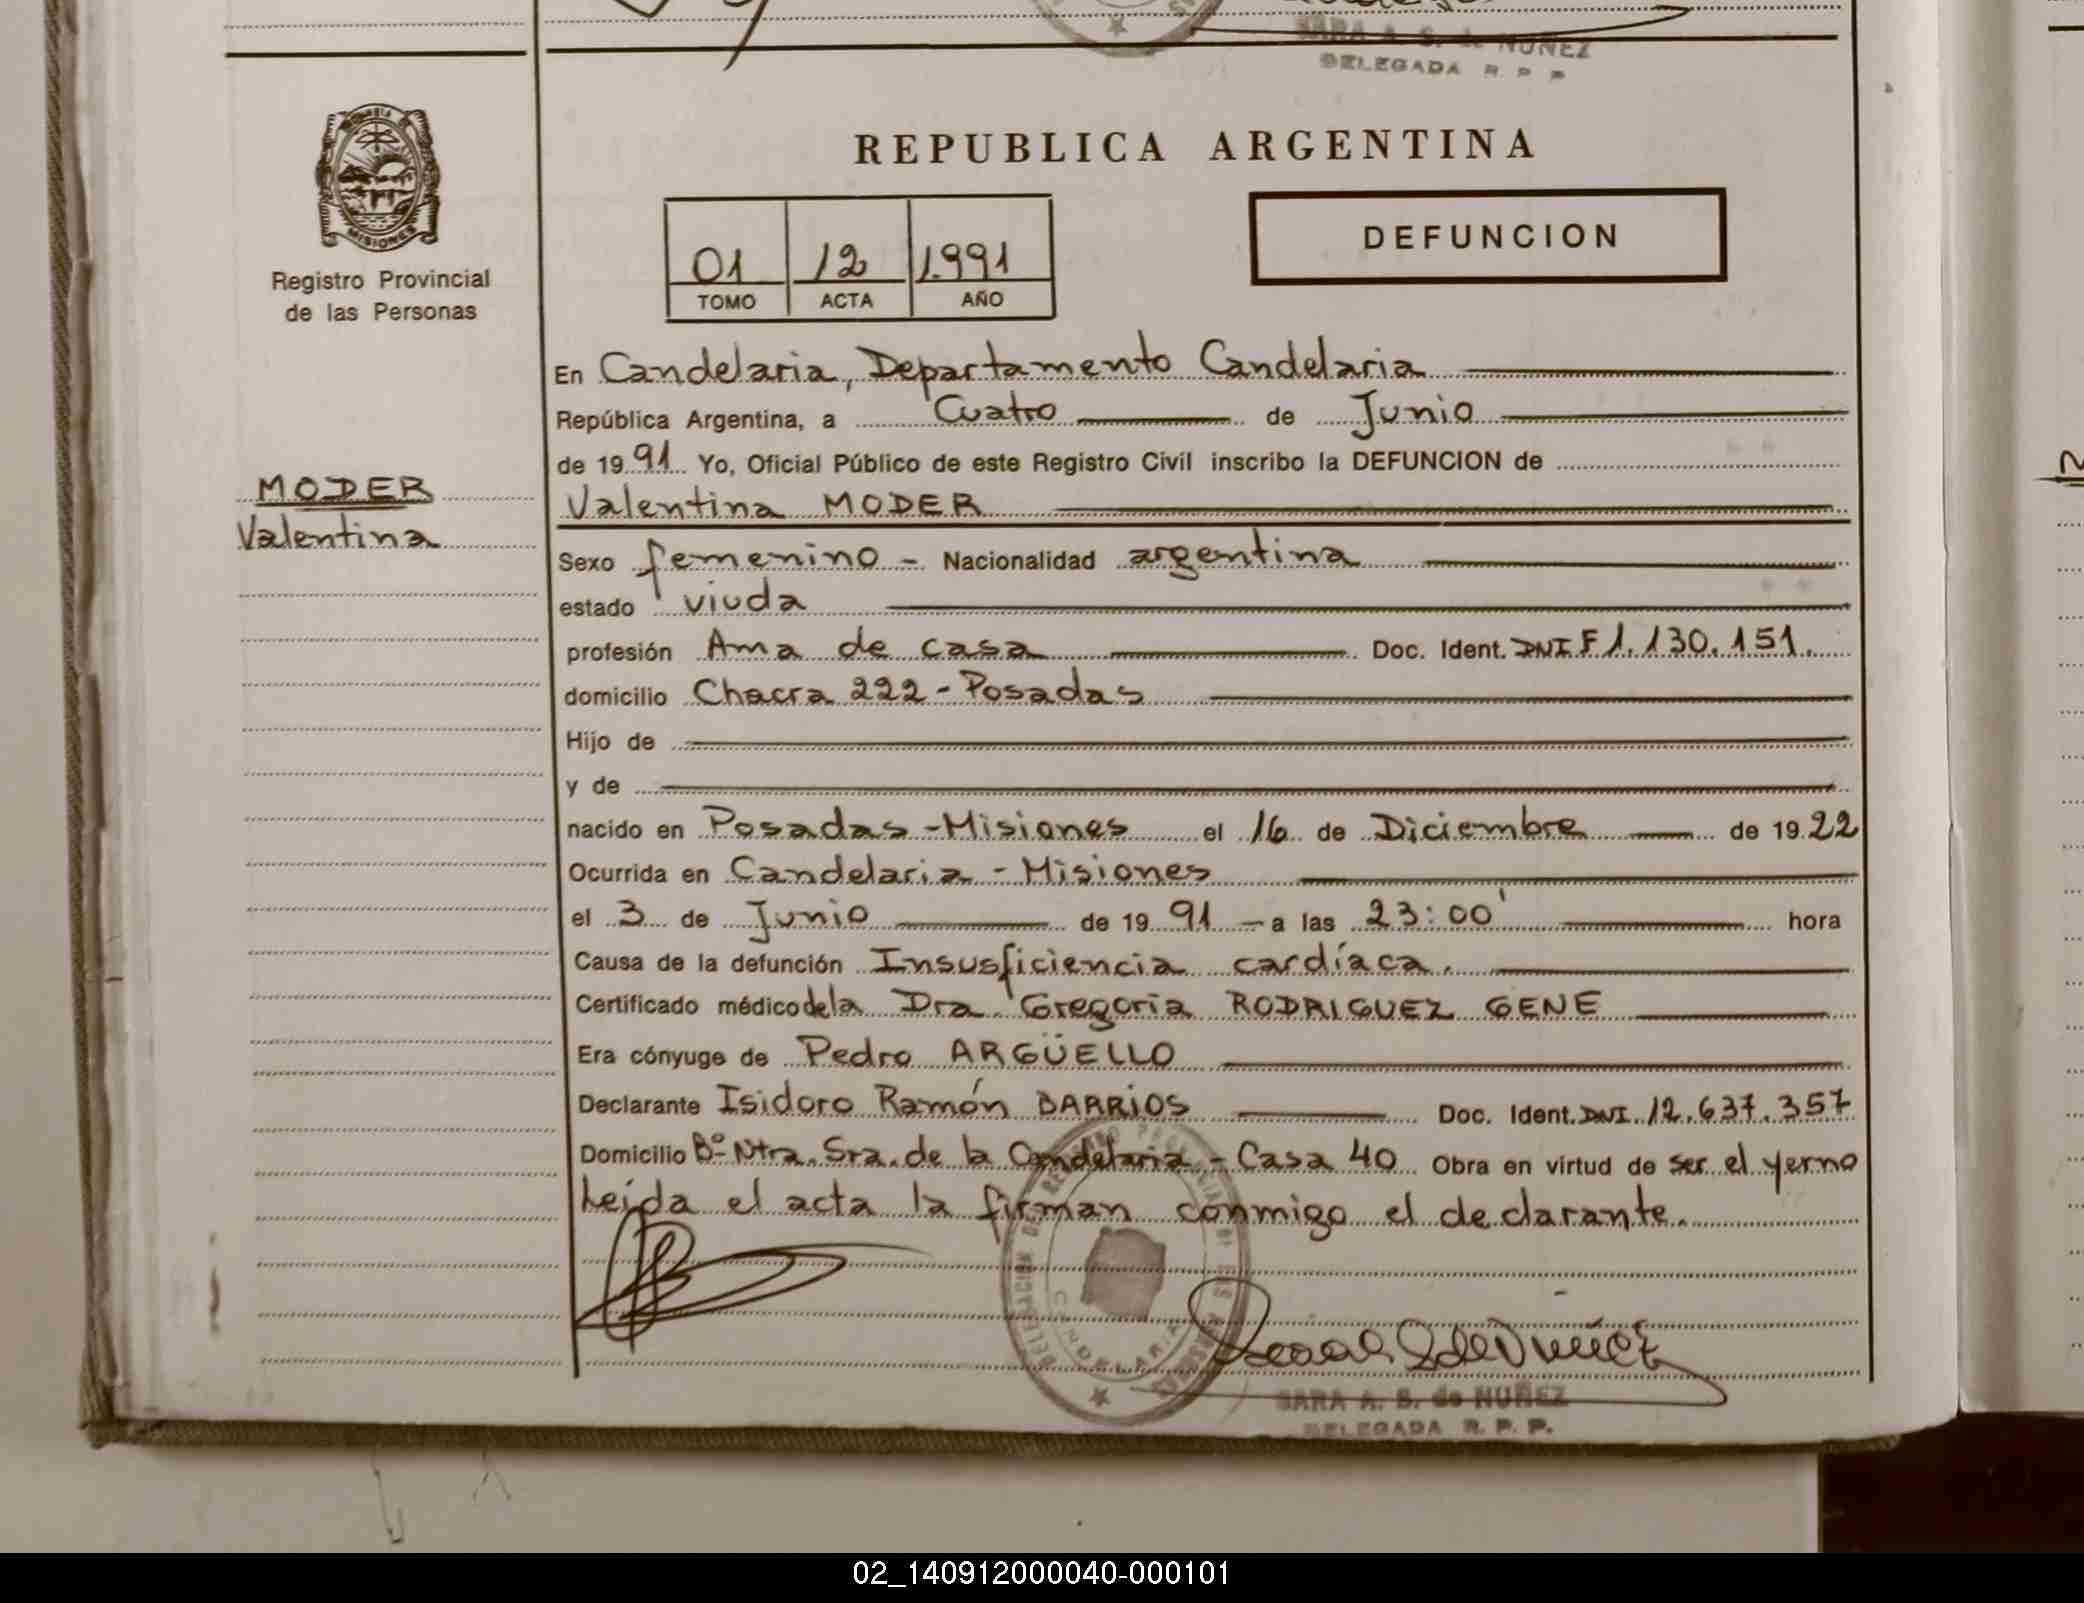 SARA A. S. de NUÑEZ
DELEGADA R. P. P.
MISIONES
Registro Provincial
de las Personas
MODER
Valentina
REPUBLICA ARGENTINA
01 12 1.991
TOMO ACTA AÑO
DEFUNCION
En Candelaria, Departamento Candelaria
República Argentina, a Cuatro de Junio
de 1991 Yo, Oficial Público de este Registro Civil inscribo la DEFUNCION de
Valentina MODER
Sexo femenino - Nacionalidad argentina
estado viuda
profesión Ama de casa Doc. Ident. DNI F 1.130.151.
domicilio Chacra 222 - Posadas
Hijo de
y de
nacido en Posadas - Misiones el 16 de Diciembre de 1922
Ocurrida en Candelaria - Misiones
el 3 de Junio de 1991 - a las 23:00' hora
Causa de la defunción Insusficiencia cardíaca.
Certificado médico de la Dra. Gregoria RODRIGUEZ GENE
Era cónyuge de Pedro ARGÜELLO
Declarante Isidoro Ramón BARRIOS Doc. Ident. DNI. 12.637.357
Domicilio Bº Ntra. Sra. de la Candelaria - Casa 40 Obra en virtud de ser el yerno
Leida el acta la firman conmigo el declarante.
CANDELARIA
SARA A. S. de NUÑEZ
DELEGADA R. P. P.
02_140912000040-000101